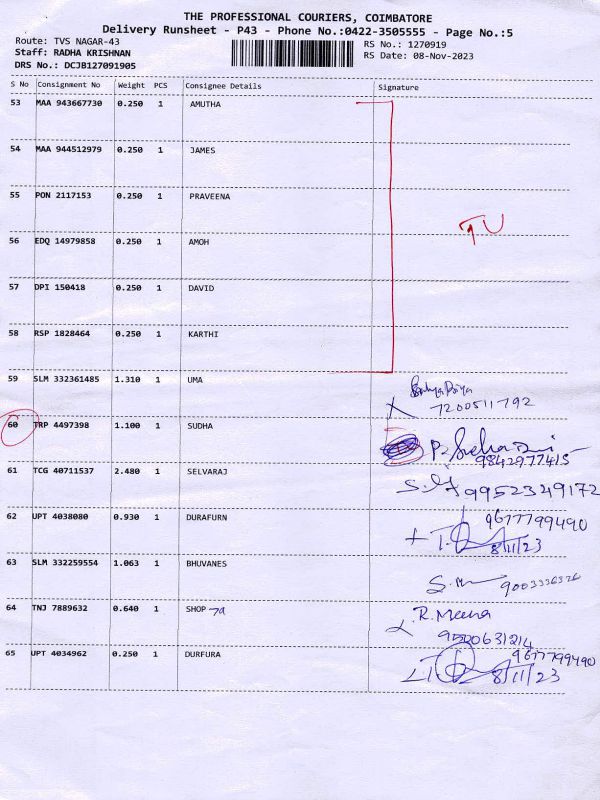 THE PROFESSIONAL COURIERS, COIMBATORE
Delivery Runsheet - P43 - Phone No.:0422-3505555 - Page No.:5
Route: TVS NAGAR-43 RS No.: 1270919
Staff: RADHA KRISHNAN RS Date: 08-Nov-2023
DRS No.: DCJB127091905
S No Consignment No Weight PCS Consignee Details Signature
53 MAA 943667730 0.250 1 AMUTHA
54 MAA 944512979 0.250 1 JAMES
55 PON 2117153 0.250 1 PRAVEENA
TU
56 EDQ 14979858 0.250 1 AMOH
57 DPI 150418 0.250 1 DAVID
58 RSP 1828464 0.250 1 KARTHI
59 SLM 332361485 1.310 1 UMA
7200511792
60 TRP 4497398 1.100 1 SUDHA
9842977415
61 TCG 40711537 2.480 1 SELVARAJ
9952349172
62 UPT 4038080 0.930 1 DURAFURN 9677799490
8/11/23
63 SLM 332259554 1.063 1 BHUVANES
9003336326
64 TNJ 7889632 0.640 1 SHOP 7a R. Meena
65 UPT 4034962 0.250 1 DURFURA 9677799490
8/11/23